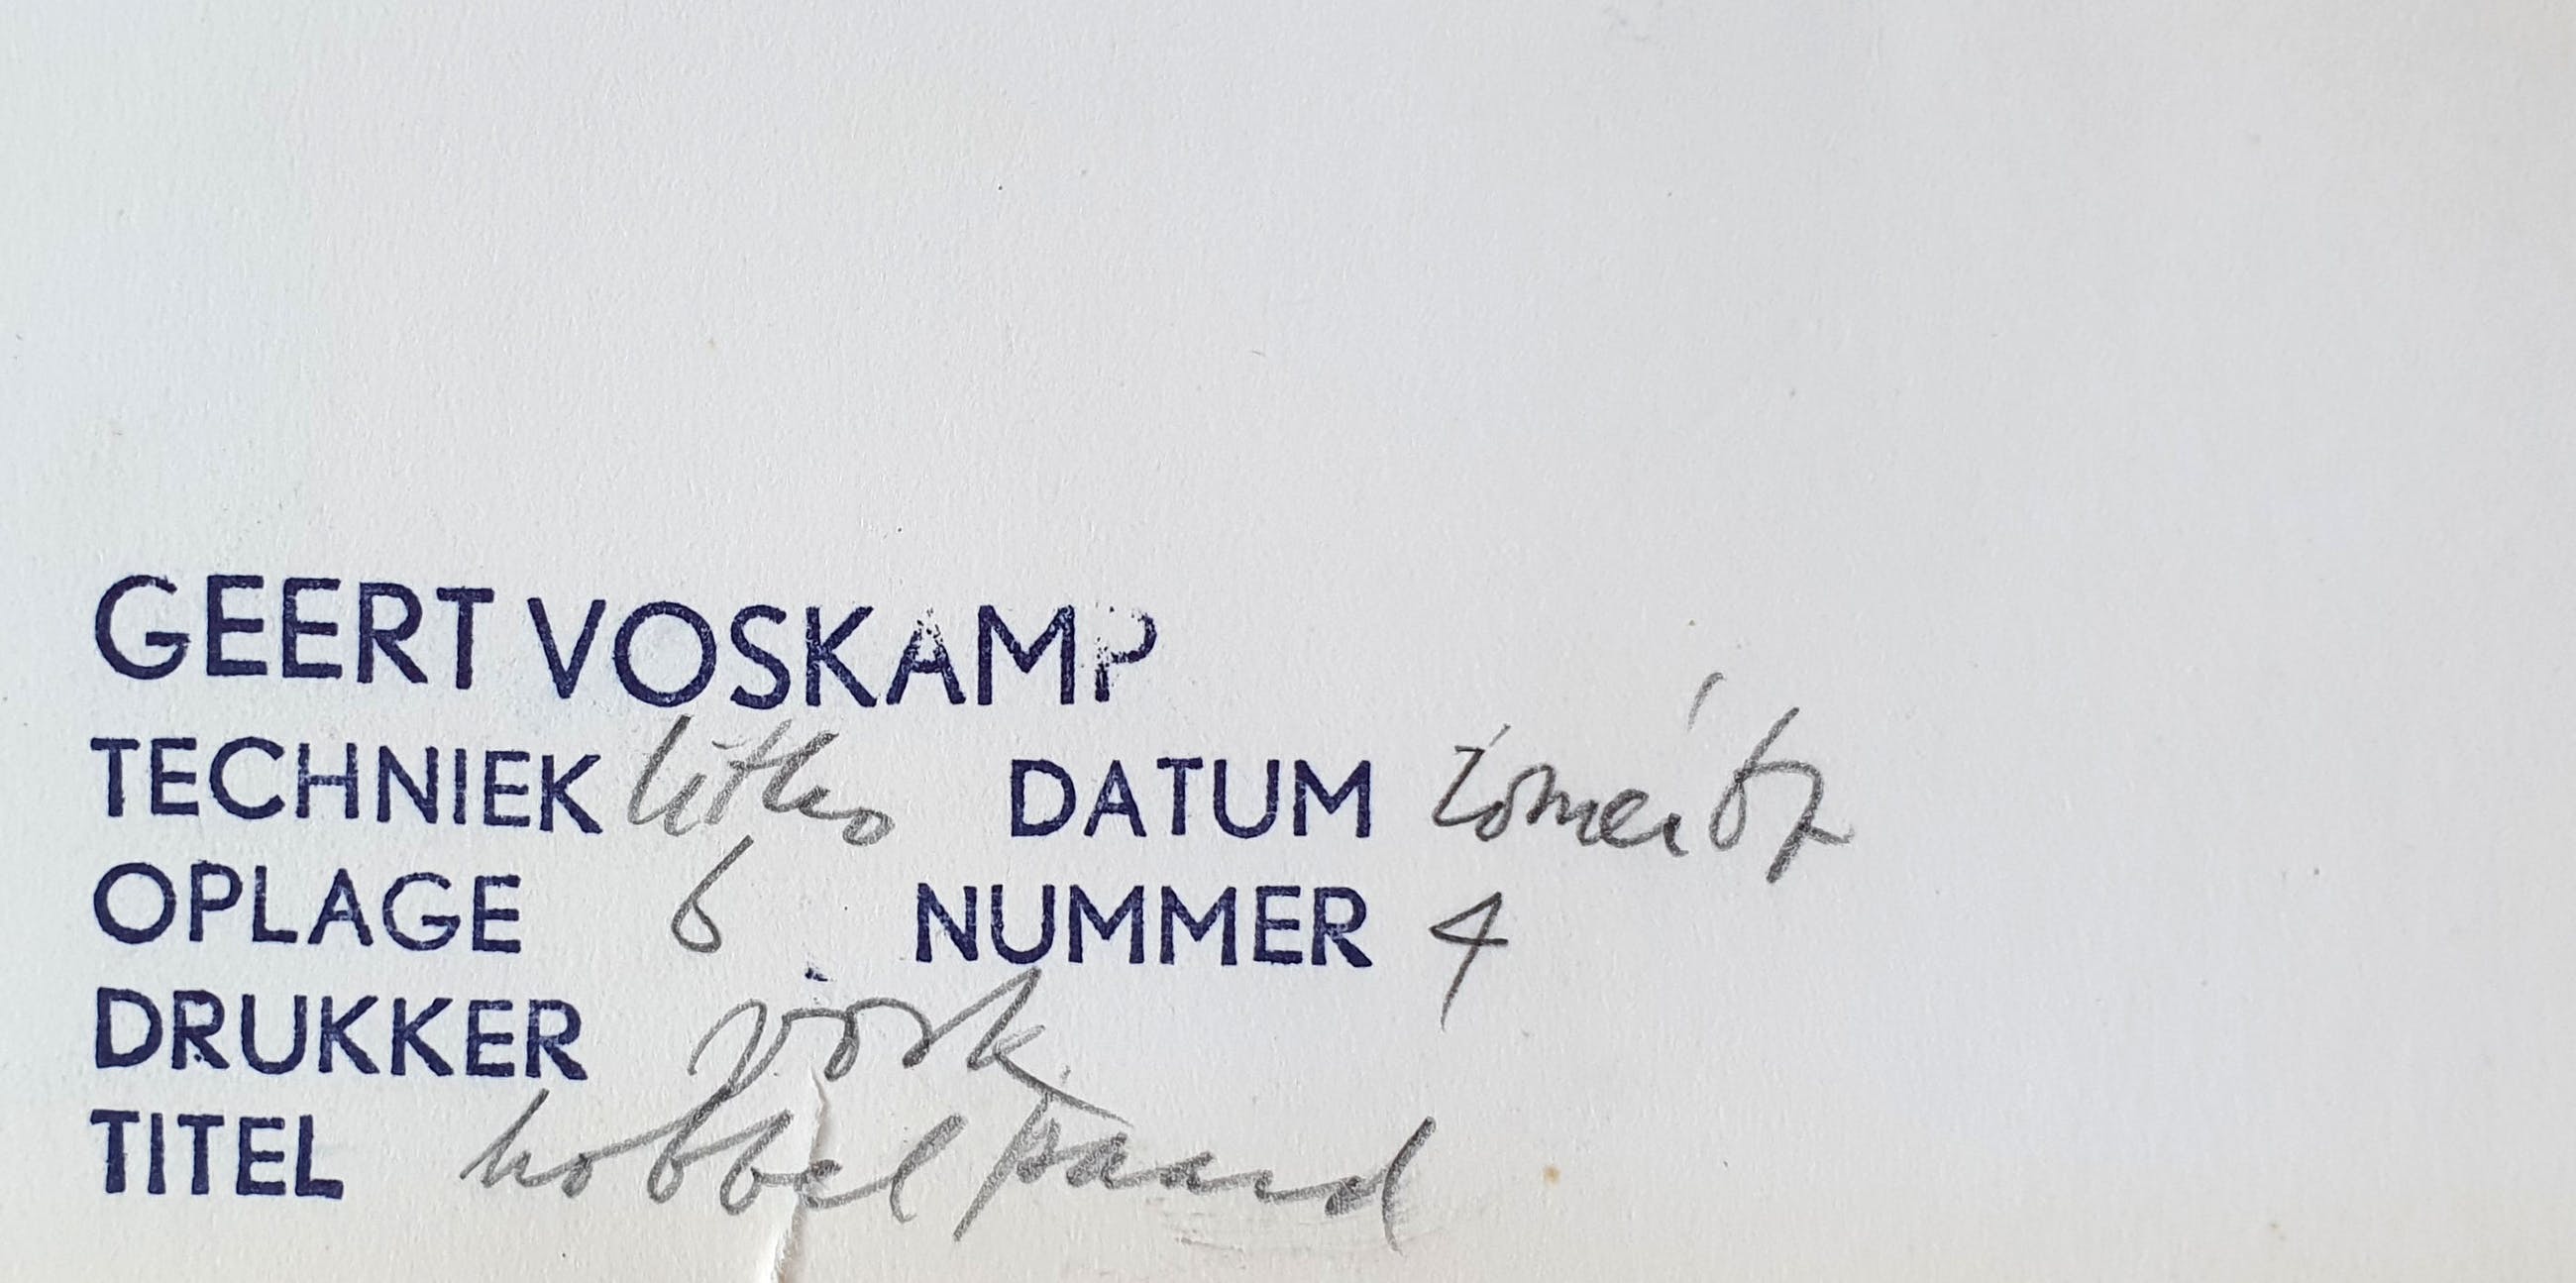 GEERT VOSKAMP
TECHNIEK litho DATUM zomer '67
OPLAGE 6 NUMMER 4
DRUKKER Vosk.
TITEL hobbelpaard